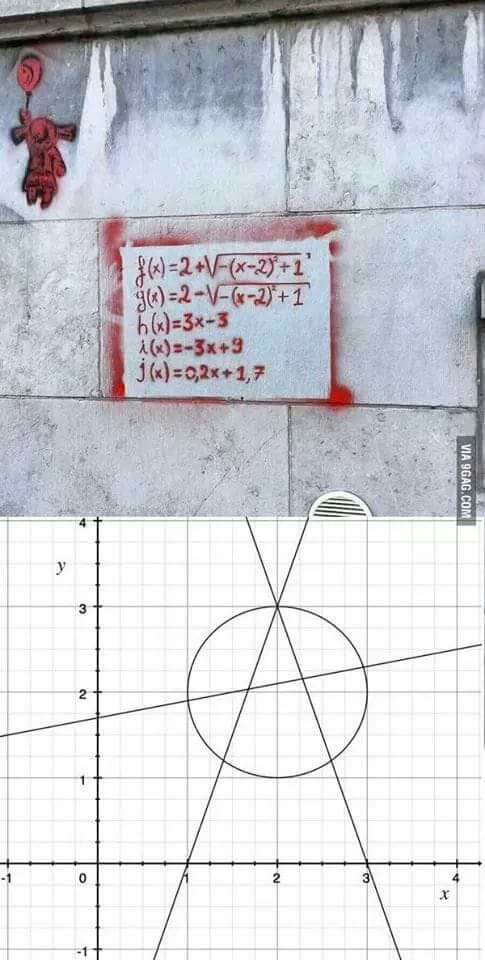 f(x)=2+√-(x-2)²+1
g(x)=2-√-(x-2)²+1
h(x)=3x-3
i(x)=-3x+9
j(x)=0,2x+1,7
VIA 9GAG.COM
4
y
3
2
1
-1
0
1
2
3
4
x
-1